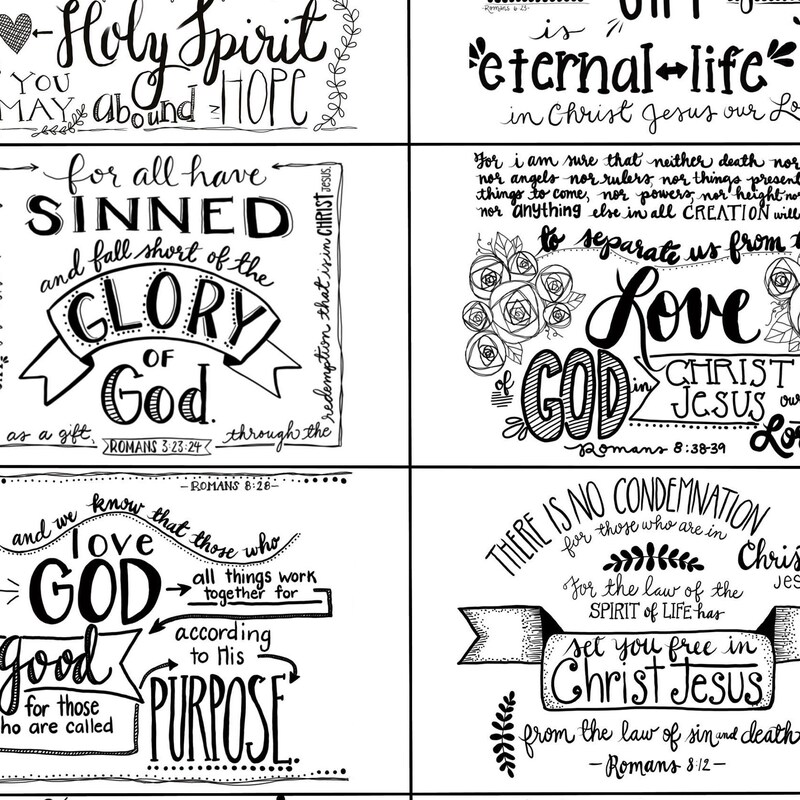 Holy Spirit
YOU
MAY abound IN HOPE
Romans 6:23
is
eternal life
in Christ Jesus our
for all have
SINNED
and fall short of the
GLORY
OF
God.
as a gift
ROMANS 3:23-24
through the
redemption that is in CHRIST JESUS.
For i am sure that neither death nor
nor angels nor rulers, nor things present
things to come, nor powers, nor height nor
nor anything else in all CREATION will
to separate us from
Love
of GOD in CHRIST
JESUS our
Lo
Romans 8:38-39
-ROMANS 8:28-
and we know that those who
love
GOD
all things work
together for
good
according
to His
PURPOSE.
for those
who are called
THERE IS NO CONDEMNATION
for those who are in
Chris
JES
For the law of the
SPIRIT of LIFE has
set you free in
Christ Jesus
from the law of sin and death
-Romans 8:12-